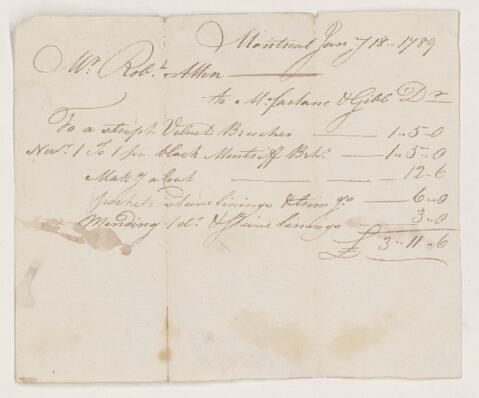 Montreal Jany 18 - 1789
Mr. Robt. Allen
To McFarlane & Gibb Dr
To a stript Velvet Breeches 1 .. 5 .. 0
Novr. 1 To 1 pr. black Brhs. 1 .. 5 .. 0
Makg a Coat 12 .. 6
pockets Sleive linings & trimgs 6 .. 0
Mending 1 do. & Sleive linings 3 .. 0
£ 3 .. 11 .. 6